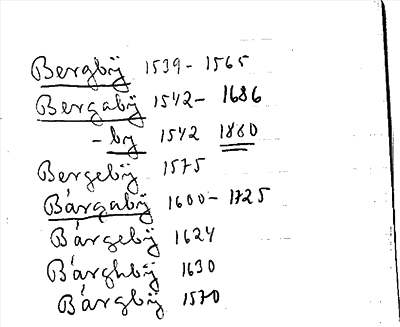 Bergbÿ 1539-1565
Bergabÿ 1542-1686
-by 1542 1880
Bergebÿ 1575
Bárgabÿ 1600-1725
Bárgebÿ 1624
Bárghbÿ 1630
Bárgbÿ 1570